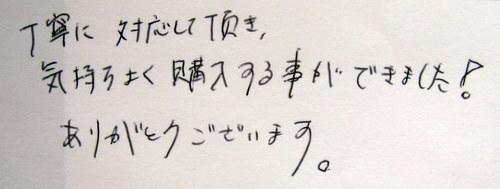 丁寧に 対応して頂き,
気持ちよく購入する事ができました!
ありがとうございます。